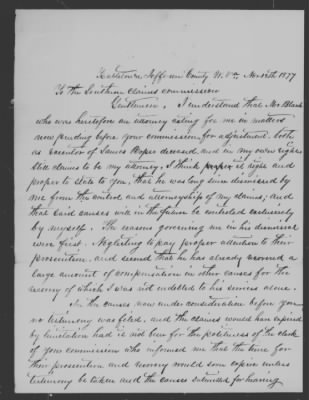 Jefferson County W. Va. Nov 13th 1877
To the Southern Claims Commission
Gentlemen. I understand that Mr Black
who was heretofore an attorney acting for me in matters
now pending before your commission for adjustment, both
as executor of James Roper deceased, and in my own right
still claims to be my attorney. I think proper it right and
proper to state to you, that he was long since dismissed by
me from the control and attorneyship of my claims, and
that said causes will in the future be contested exclusively
by myself. The reasons governing me in his dismissal
were first. Neglecting to pay proper attention to their
prosecution. and second that he has already received a
large amount of compensation in other causes for the
recovery of which I was not indebted to his services alone.
In the causes now under consideration before you
no testimony was filed, and the claims would have expired
by limitation had it not been for the politeness of the clerk
of your commission who informed me that the time for
their prosecution and recovery would soon expire unless
testimony be taken and the causes submitted for hearing